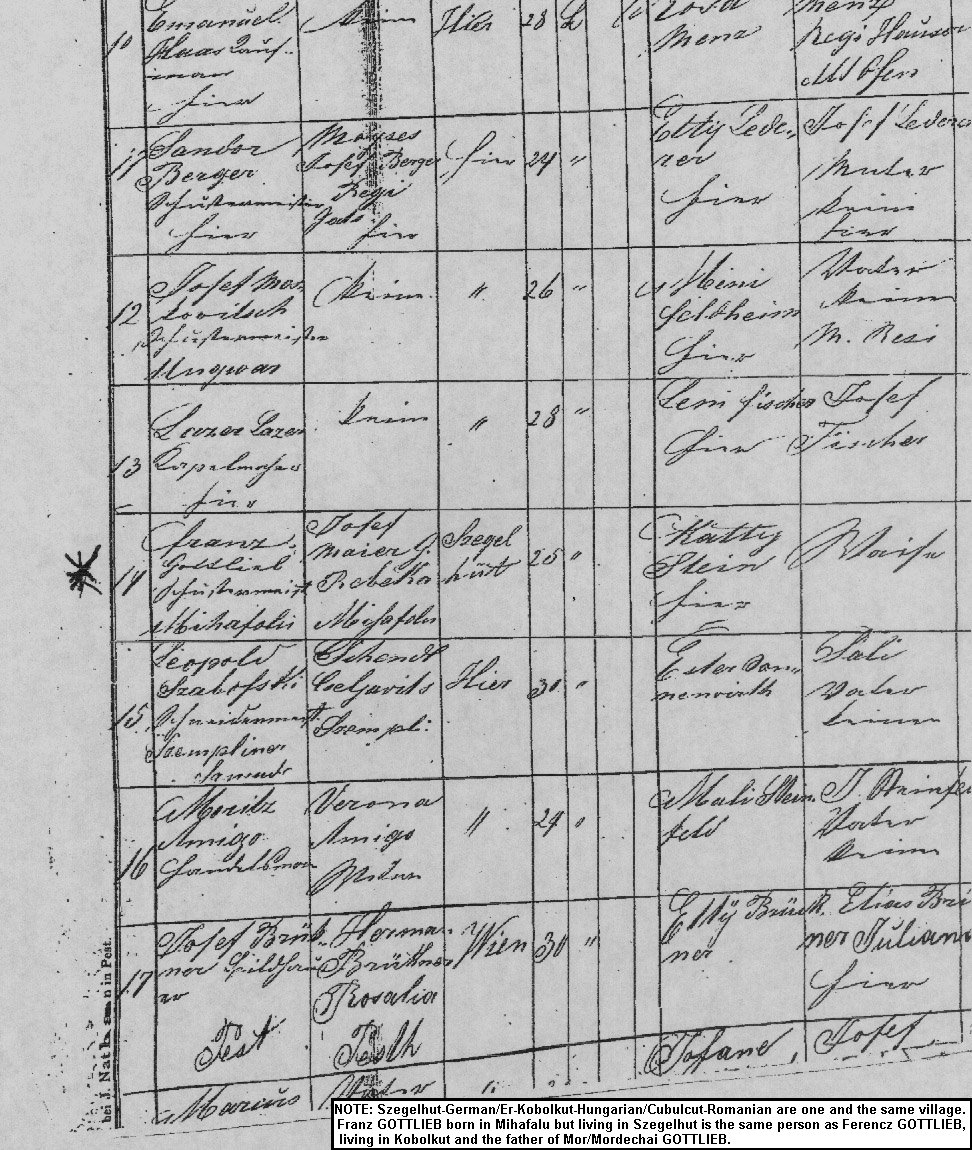 10 Emanuel Haas Kauf- man hier
Hier 28
Menz
Regi Hauser
Alt Ofen
11 Sandor Berger Schustermeister hier
Moyses Josef Berger Regi hier
hier 24 "
Etty Lede- rer hier
Josef Lederer Muter keine hier
12 Josef Mos- kovitsch Schustermeister Ungvar
keine " 26 "
Mini Feldheim hier
Vater keine M. Resi
13 Lazer Lazer Kapelmacher hier
keine " 28 "
Leni Fischer hier
Josef Fischer
14 Franz Gottlieb Schustermeist Mihafolu
Josef Maier G. Rebeka Mihafolu
Szegel hüt 25 "
Katty Stein hier
Waise
15 Leopold Szabofski Schneidermeist Szempliner
Szempli.
Hier 30 "
Ester Son- nenwirth
Sali Vater keine
16 Moritz Amigo Handelsman
Verona Amigo Witwe
" 29 "
Mali Stein feld
J. Steinfe Vater keine
17 Josef Brük- ner Bildhau er Pest
Herma- Brükner Rosalia Pesth
Wien 30 "
Etty Brück ner
Elias Brü ner Juliana hier
Marcus Vater "
Josef
bei J. Nathan in Pest.
NOTE: Szegelhut-German/Er-Kobolkut-Hungarian/Cubulcut-Romanian are one and the same village.
Franz GOTTLIEB born in Mihafalu but living in Szegelhut is the same person as Ferencz GOTTLIEB,
living in Kobolkut and the father of Mor/Mordechai GOTTLIEB.